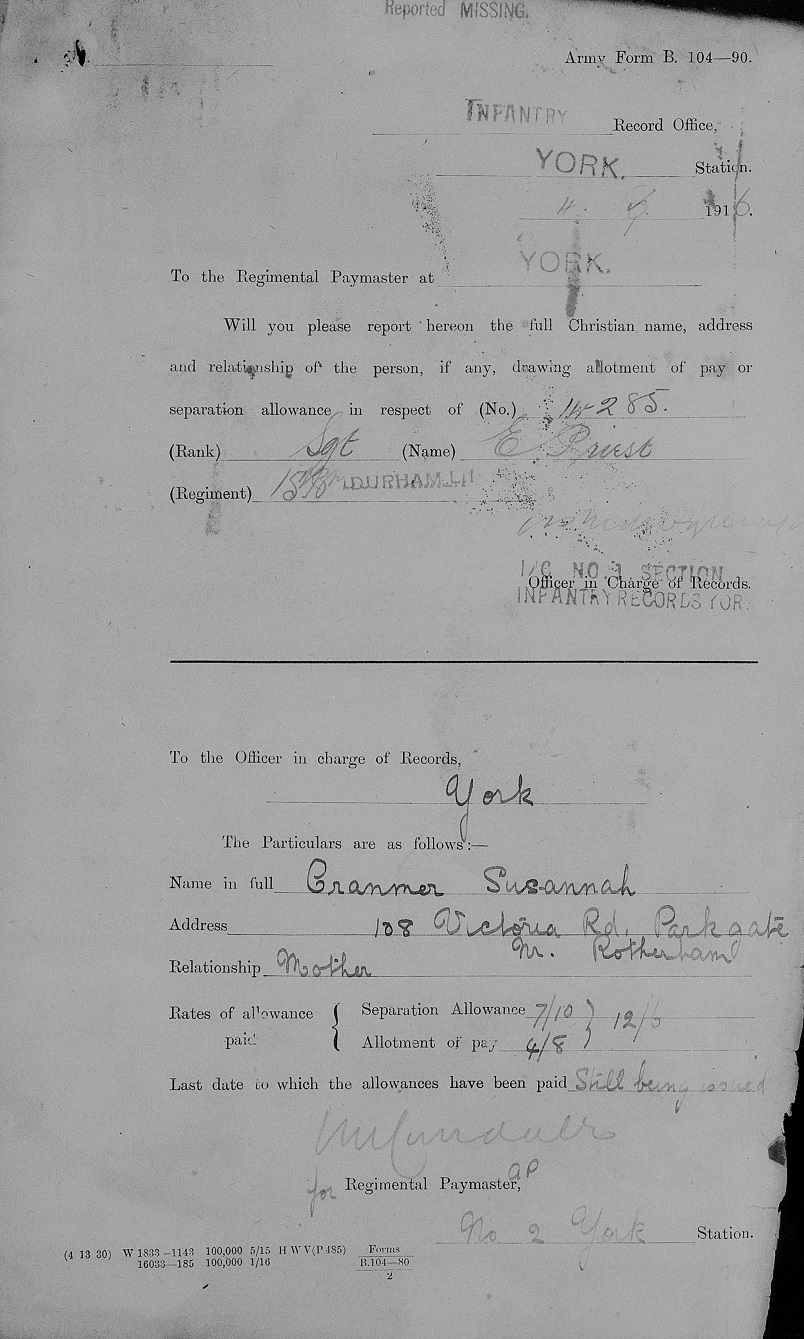 Reported MISSING.
Army Form B. 104—90.
INFANTRY Record Office,
YORK. Station.
4. 1916.
YORK.
To the Regimental Paymaster at
Will you please report hereon the full Christian name, address
and relationship of the person, if any, drawing allotment of pay or
separation allowance in respect of (No.) 14285.
(Rank) Sgt (Name) E Priest
(Regiment) 15th DURHAM L.I.
I/C NO 1 SECTION
Officer in Charge of Records.
INFANTRY RECORDS YOR.
To the Officer in charge of Records,
York
The Particulars are as follows:—
Name in full Cranmer Susannah
Address 108 Victoria Rd. Parkgate
Nr. Rotherham
Relationship Mother
Rates of allowance paid { Separation Allowance 7/10 } 12/6
Allotment of pay 4/8
Last date to which the allowances have been paid Still being issued
for Regimental Paymaster, AP
No 2 York Station.
(4 13 30) W 1833—1143 100,000 5/15 H W V(P 485) Forms
16033—185 100,000 1/16 B.104—80
2